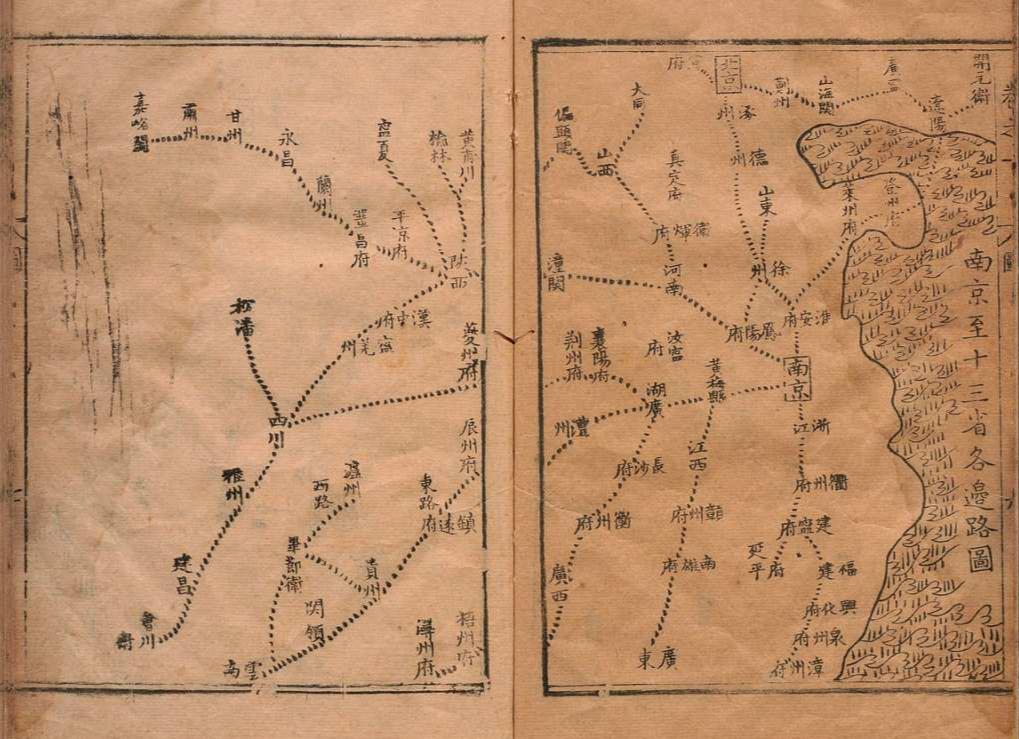 南京至十三省各邊路圖
開元衛
遼陽
山海關
薊州
北京
涿州
德州
山東
徐州
登州府
萊州府
淮安府
鳳陽府
南京
浙江
衢州府
建寧府
延平府
福建
興化府
泉州府
漳州府
大同
偏頭關
山西
真定府
衛輝府
河南
潼關
汝寧府
襄陽府
荆州府
黃梅縣
湖廣
澧州
長沙府
衡州府
廣西
江西
贛州府
南雄府
廣東
黃甫川
榆林
寧夏
陝西
平凉府
鞏昌府
蘭州
永昌
甘州
肅州
嘉峪關
漢中府
寧羌州
松潘
夔州府
四川
雅州
建昌
會川
辰州府
東路
鎮遠府
瀘州
西路
畢節衛
貴州
関領
雲南
梧州府
潯州府